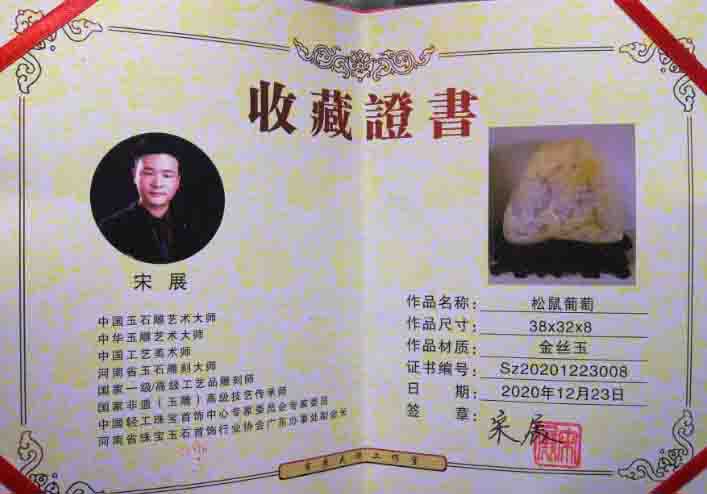 收藏證書
宋 展
中国玉石雕艺术大师
中华玉雕艺术大师
中国工艺美术师
河南省玉石雕刻大师
国家一级/高级工艺品雕刻师
国家非遗（玉雕）高级技艺传承师
中国轻工珠宝首饰中心专家委员会专家委员
河南省珠宝玉石首饰行业协会广东办事处副会长
作品名称： 松鼠葡萄
作品尺寸： 38x32x8
作品材质： 金丝玉
证书编号： Sz20201223008
日 期： 2020年12月23日
签 章： 宋展